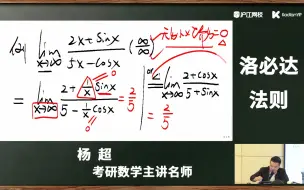 沪江网校
例 lim x→∞ (2x+Sinx)/(5x-Cosx) (∞/∞)
= lim x→∞ (2+1/x Sinx)/(5-1/x Cosx) = 2/5
lim x→∞ (2+Cosx)/(5+Sinx)
= 2/5
洛必达
法则
杨 超
考研数学主讲名师